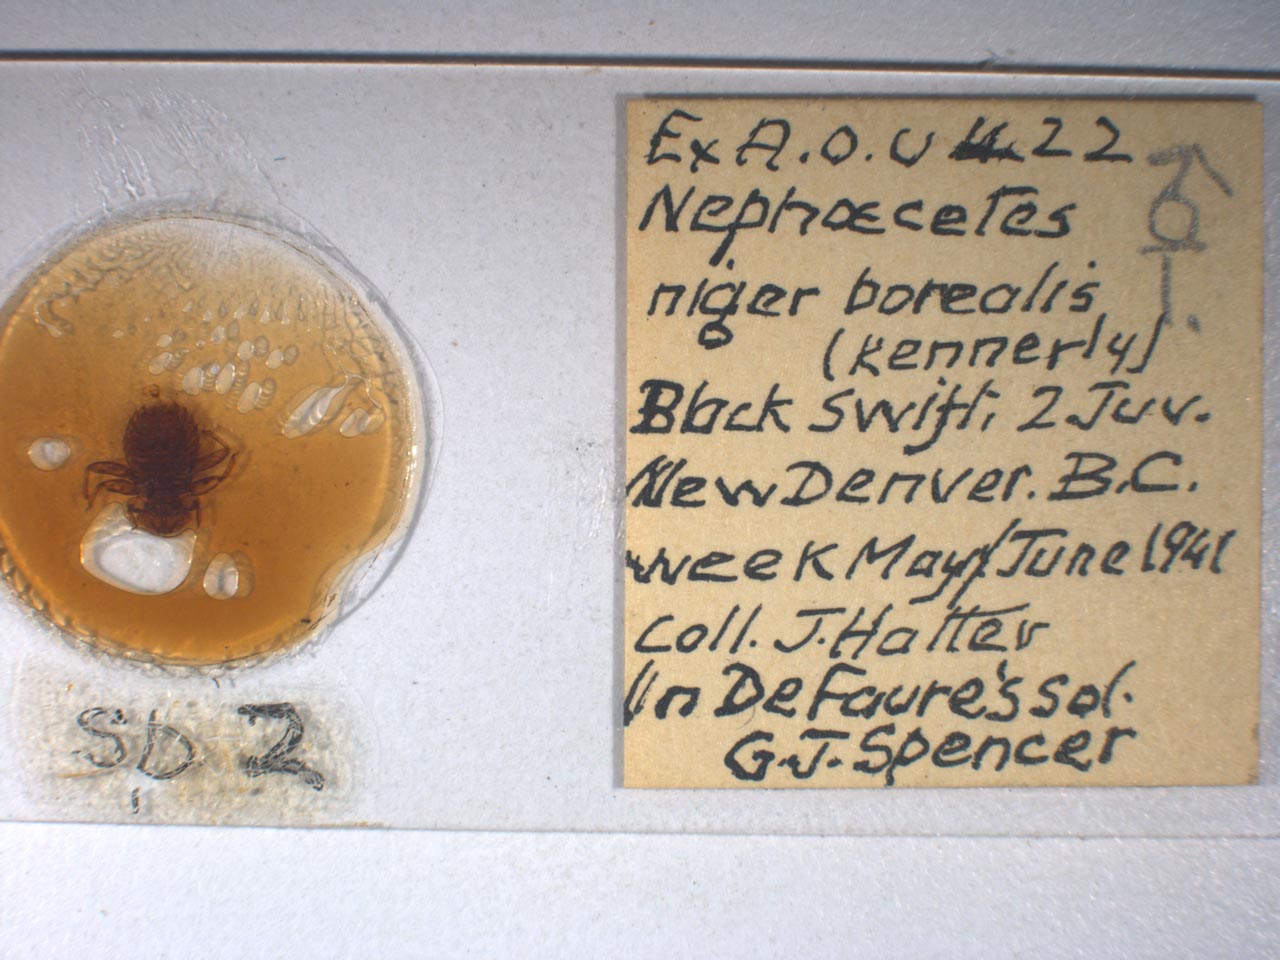 Ex A.O.U 422
Nephœcetes
niger borealis
(Kennerly)
Black Swift; 2 Juv.
New Denver. B.C.
week May/June 1941
Coll. J. Hatter
In De Faure's sol.
G.J. Spencer
SD 2